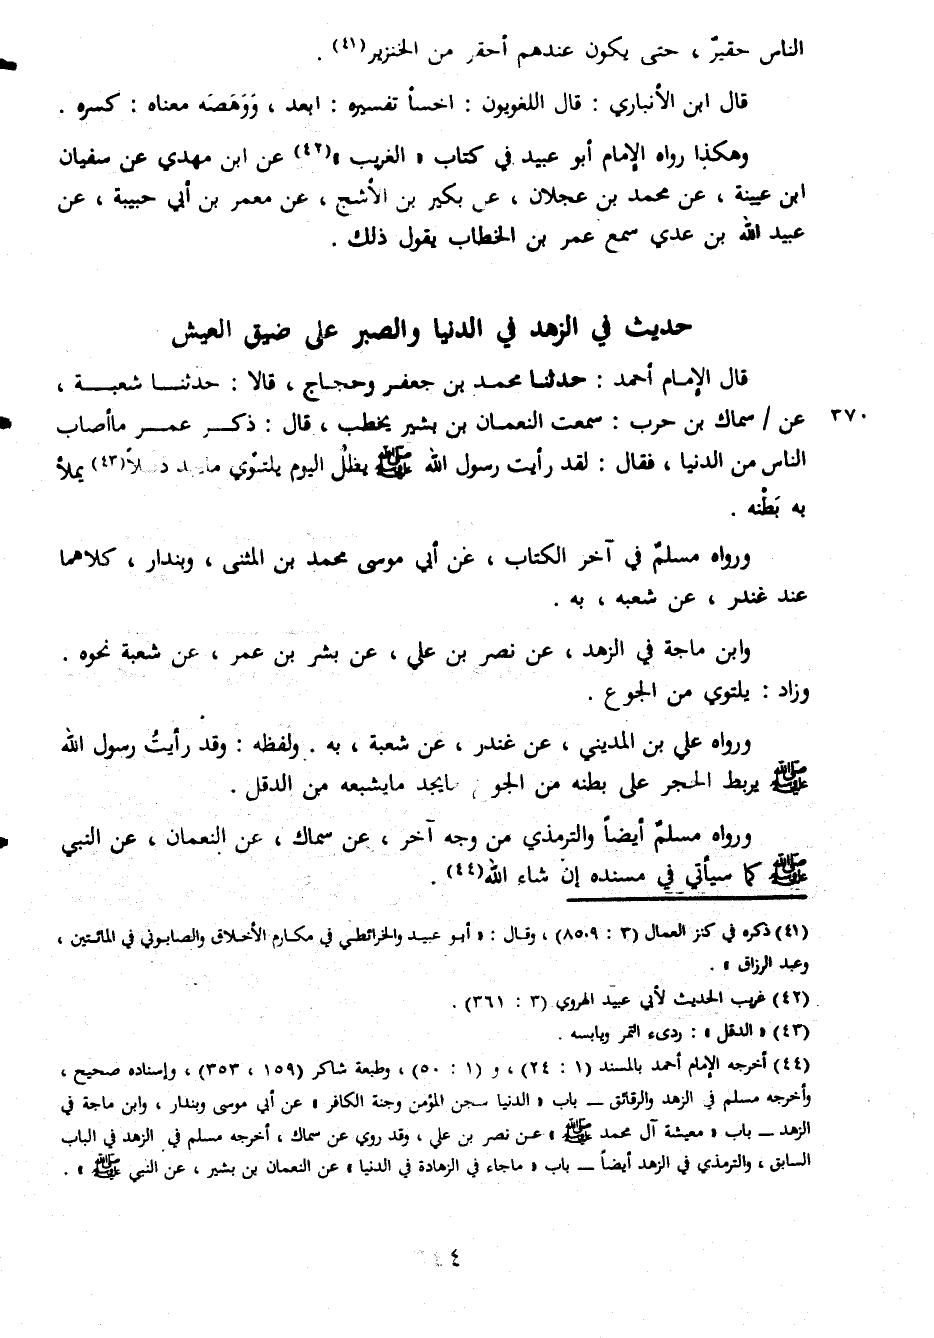 الناس حقيرٌ ، حتى يكون عندهم أحقر من الخنزير(٤١) .
قال ابن الأنباري : قال اللغويون : اخسأ تفسيره : ابعد ، وَوَهَصَه معناه : كسره .
وهكذا رواه الإمام أبو عبيد في كتاب « الغريب »(٤٢) عن ابن مهدي عن سفيان
ابن عيينة ، عن محمد بن عجلان ، عن بكير بن الأشج ، عن معمر بن أبي حبيبة ، عن
عبيد الله بن عدي سمع عمر بن الخطاب يقول ذلك .
حديث في الزهد في الدنيا والصبر على ضيق العيش
قال الإمام أحمد : حدثنا محمد بن جعفر وحجاج ، قالا : حدثنا شعبة ،
٣٧٠ عن / سماك بن حرب : سمعت النعمان بن بشير يخطب ، قال : ذكر عمر ماأصاب
الناس من الدنيا ، فقال : لقد رأيت رسول الله ﷺ يظلُ اليوم يلتوْي (٤٣) يملأ
به بَطْنه .
ورواه مسلمٌ في آخر الكتاب ، عَن أبي موسى محمد بن المثنى ، وبندار ، كلاهما
عند غندر ، عن شعبه ، به .
وابن ماجة في الزهد ، عن نصر بن علي ، عن بشر بن عمر ، عن شعبة نحوه .
وزاد : يلتوي من الجوع .
ورواه علي بن المديني ، عن غندر ، عن شعبة ، به . ولفظه : وقد رأيتُ رسول الله
ﷺ يربط الحجر على بطنه من مايشبعه من الدقل .
ورواه مسلمٌ أيضاً والترمذي من وجه آخر ، عن سماك ، عن النعمان ، عن النبي
ﷺ كما سيأتي في مسنده إن شاء الله(٤٤) .
(٤١) ذكره في كنز العمال (٣ : ٨٥٠٩) ، وقال : « أبو عبيد والخرائطي في مكارم الأخلاق والصابوني في المائتين ،
وعبد الرزاق » .
(٤٢) غريب الحديث لأبي عبيد الهروي (٣ : ٣٦١) .
(٤٣) « الدقل » : ردىء التمر ويابسه .
(٤٤) أخرجه الإمام أحمد بالمسند (١ : ٢٤) ، و (١ : ٥٠) ، وطبعة شاكر (١٥٩ ، ٣٥٣) ، وإسناده صحيح ،
وأخرجه مسلم في الزهد والرقائق ــ باب « الدنيا سجن المؤمن وجنة الكافر » عن أبي موسى وبندار ، وابن ماجة في
الزهد ــ باب « معيشة آل محمد ﷺ » عن نصر بن علي ، وقد روي عن سماك ، أخرجه مسلم في الزهد في الباب
السابق ، والترمذي في الزهد أيضاً ــ باب « ماجاء في الزهادة في الدنيا » عن النعمان بن بشير ، عن النبي ﷺ » .